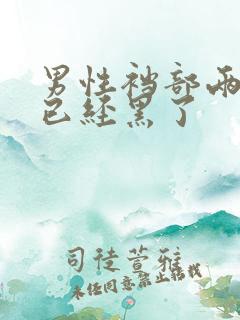 男性裆部两
已经黑了
司徒萱雅
未经同意禁止转载